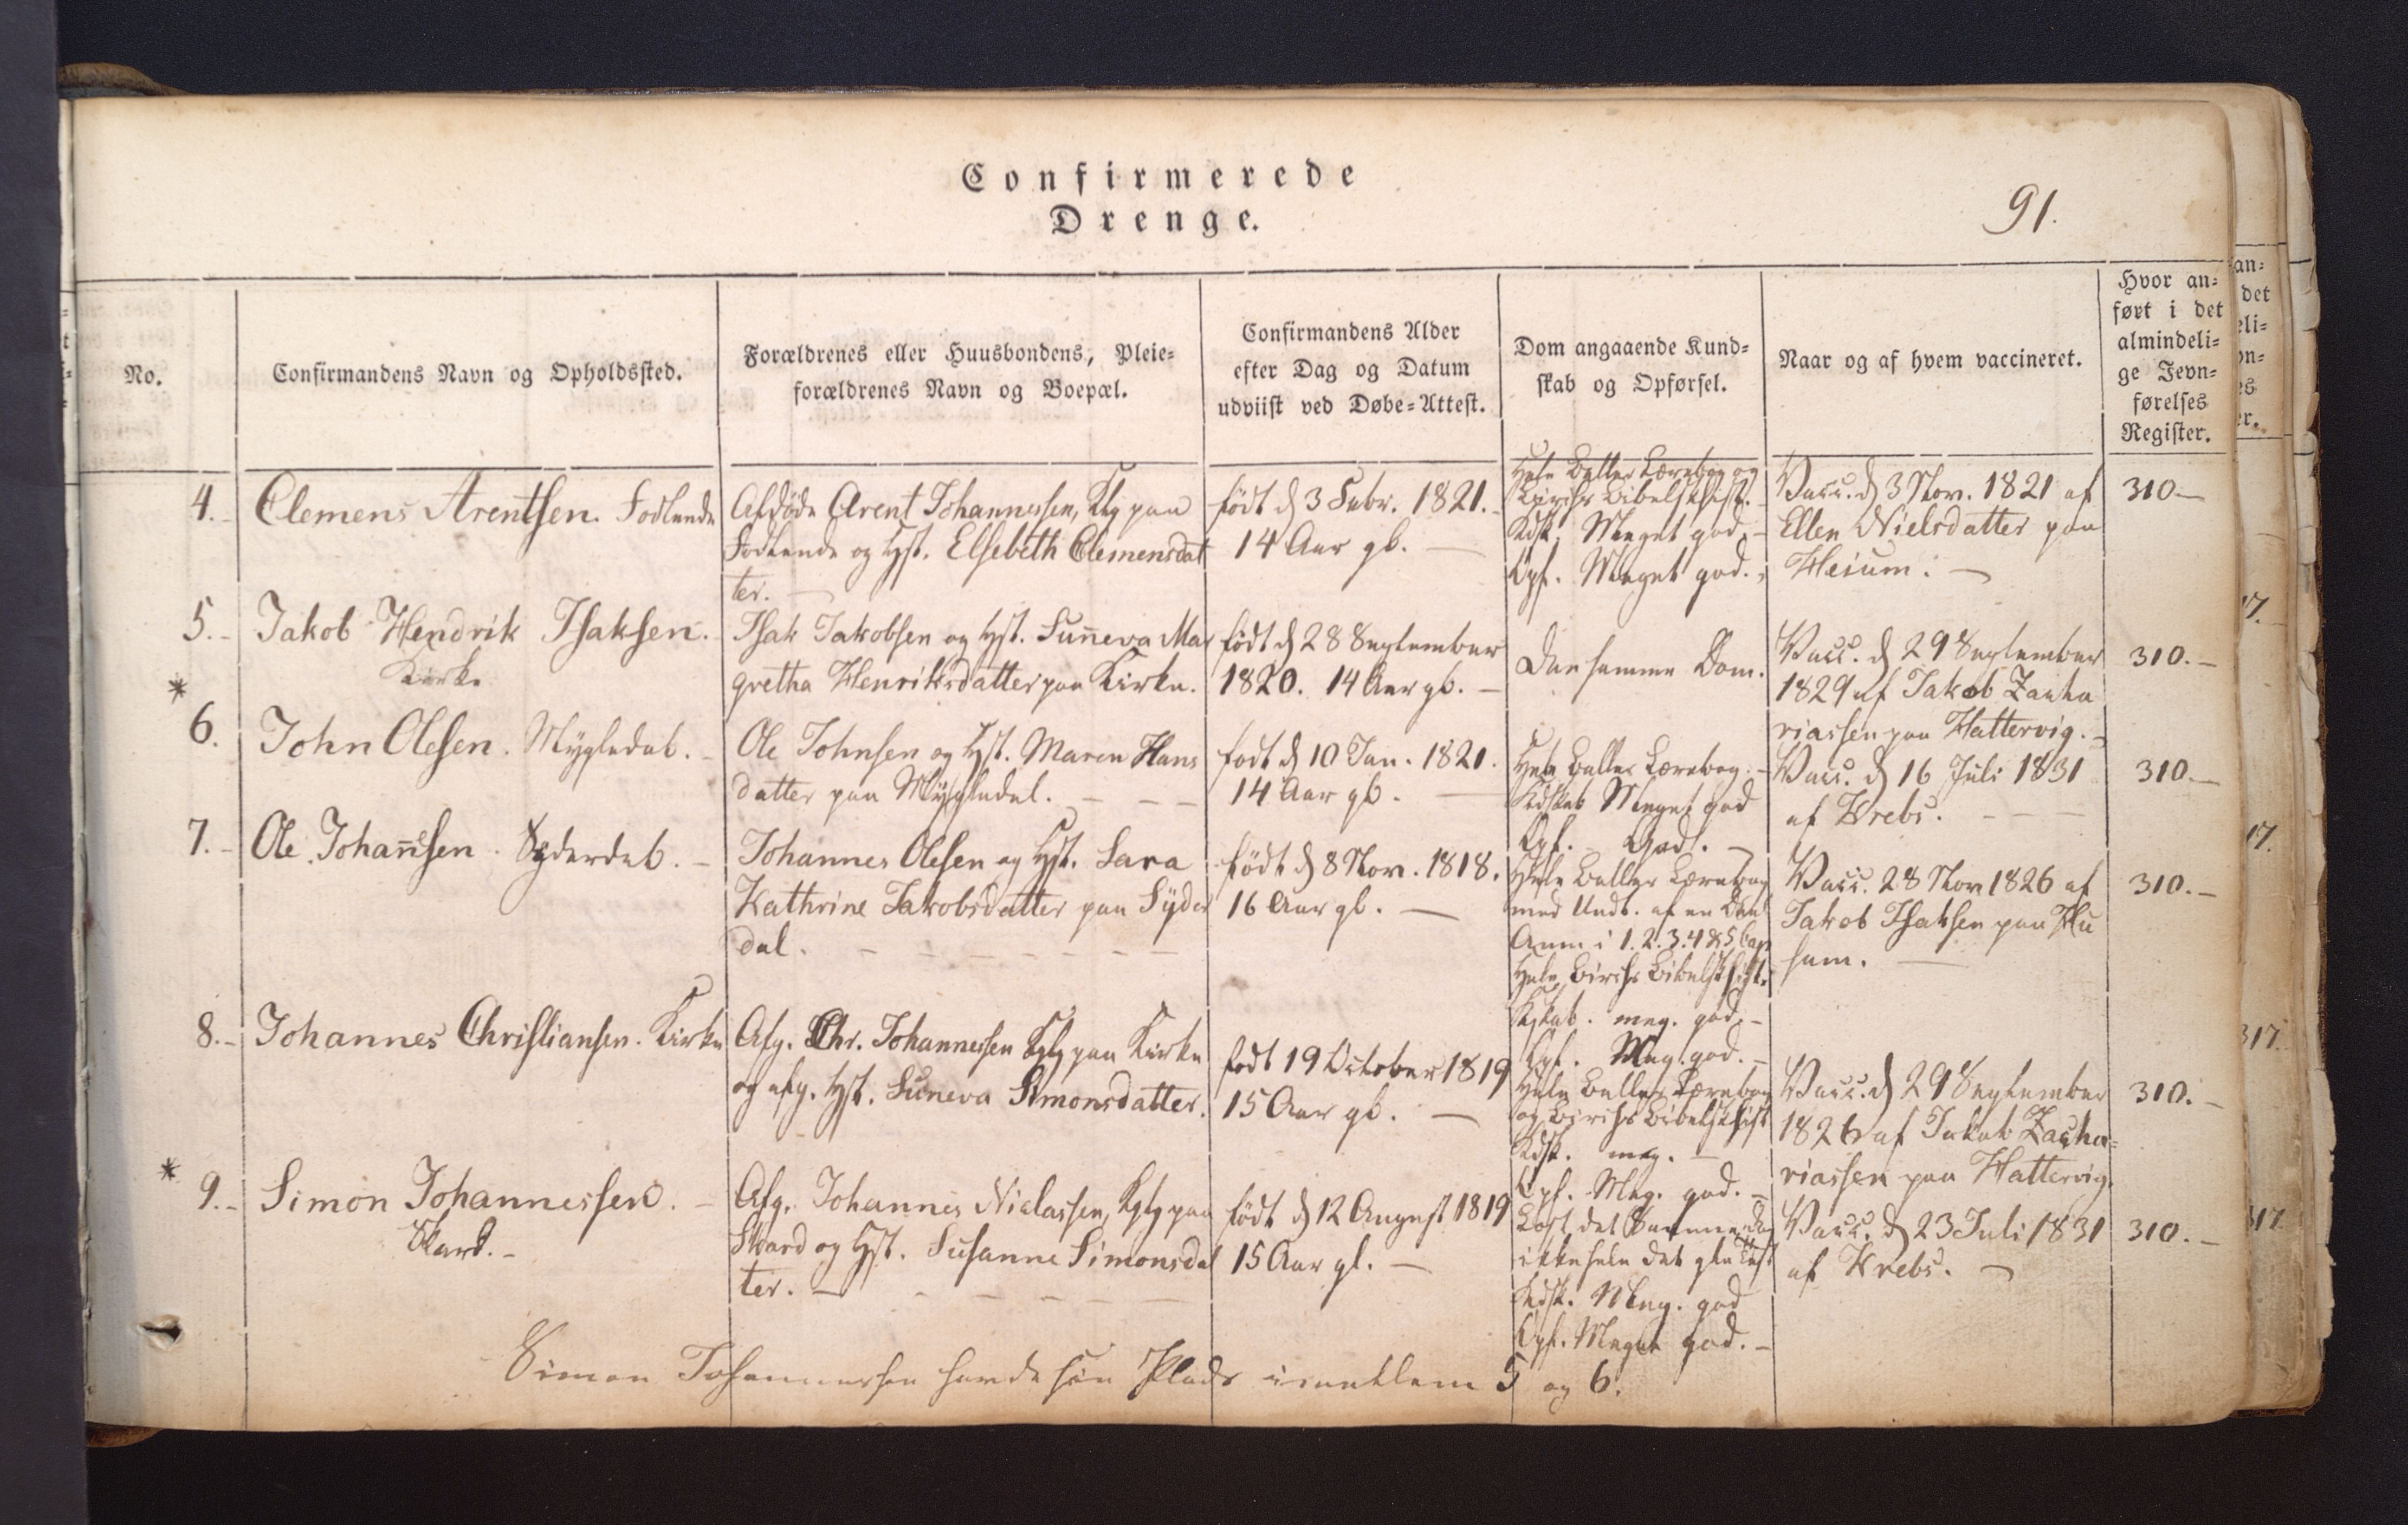 Confirmerede
Drenge.
91.
No.
Confirmandens Navn og Opholdssted.
Forældrenes eller Huusbondens, Pleie-
forældrenes Navn og Boepæl.
Confirmandens Alder
efter Dag og Datum
udviist ved Døbe-Attest.
Dom angaaende Kund-
skab og Opførsel.
Naar og af hvem vaccineret.
Hvor an-
ført i det
almindeli-
ge Jevn-
førelses
Register.
4.
Clemens Arentsen. Fodlende
Afdøde Arent Johannessen, Kbg paa
Fodlende og Hst. Elsebeth Clemensdat
ter.
født d 3 Febr. 1821.
14 Aar gl.
Hele Balles Lærebog og
Birchs Bibelskhist.
Kdsk. Meget god.
Opf. Meget god.
Vacc. d 3 Nov. 1821 af
Ellen Nielsdatter paa
Heium.
310
5.
Jakob Hendrik Isaksen.
Kirke
Isak Jakobsen og Hst. Suneva Mar
gretha Henriksdatter paa Kirke.
født d 28 September
1820. 14 Aar gl.
Den samme Dom.
Vacc. d 29 September
1829 af Jakob Zacha
riassen paa Hattervig.
310.
*
6.
John Olesen. Mygledal.
Ole Johnsen og Hst. Maren Hans
datter paa Mygledal.
født d 10 Jan. 1821.
14 Aar gl.
Hele Balles Lærebog.
Kdskab Meget god
Opf. God.
Vacc. d 16 Juli 1831
af Krebs.
310.
7.
Ole Johannsen. Syderdal.
Johannes Olesen og Hst. Sara
Kathrine Jakobsdatter paa Syder
dal.
født d 8 Nov. 1818.
16 Aar gl.
Hele Balles Lærebog
med Undt. af en Deel
Anm i 1. 2. 3. 4 & 5 Cap
Hele Birchs Bibelskhist.
Kskab. meg. god.
Opf. Meg. god.
Vacc. 28 Nov 1826 af
Jakob Isaksen paa Hu
sum.
310.
8.
Johannes Christiansen. Kirke
Afg. Chr. Johannessen Kbg paa Kirke
og afg. Hst. Suneva Simonsdatter.
født 19 October 1819
15 Aar gl.
Hele Balles Lærebog
og Birchs Bibelskhist
Kdsk. meg.
Opf. Meg. god.
Vacc. d 29 September
1826 af Jakob Zacha-
riassen paa Hattervig.
310.
*
9.
Simon Johannessen.
Skard.
Afg. Johannes Niclassen, Kbg paa
Skard og Hst. Susanne Simonsdat
ter.
født d 12 August 1819
15 Aar gl.
Læst det Samme dog
ikke hele det gle Test
Kdsk. Meg. god
Opf. Meget god.
Vacc. d 23 Juli 1831
af Krebs.
310.
Simon Johannessen havde sin Plads imellem 5 og 6.